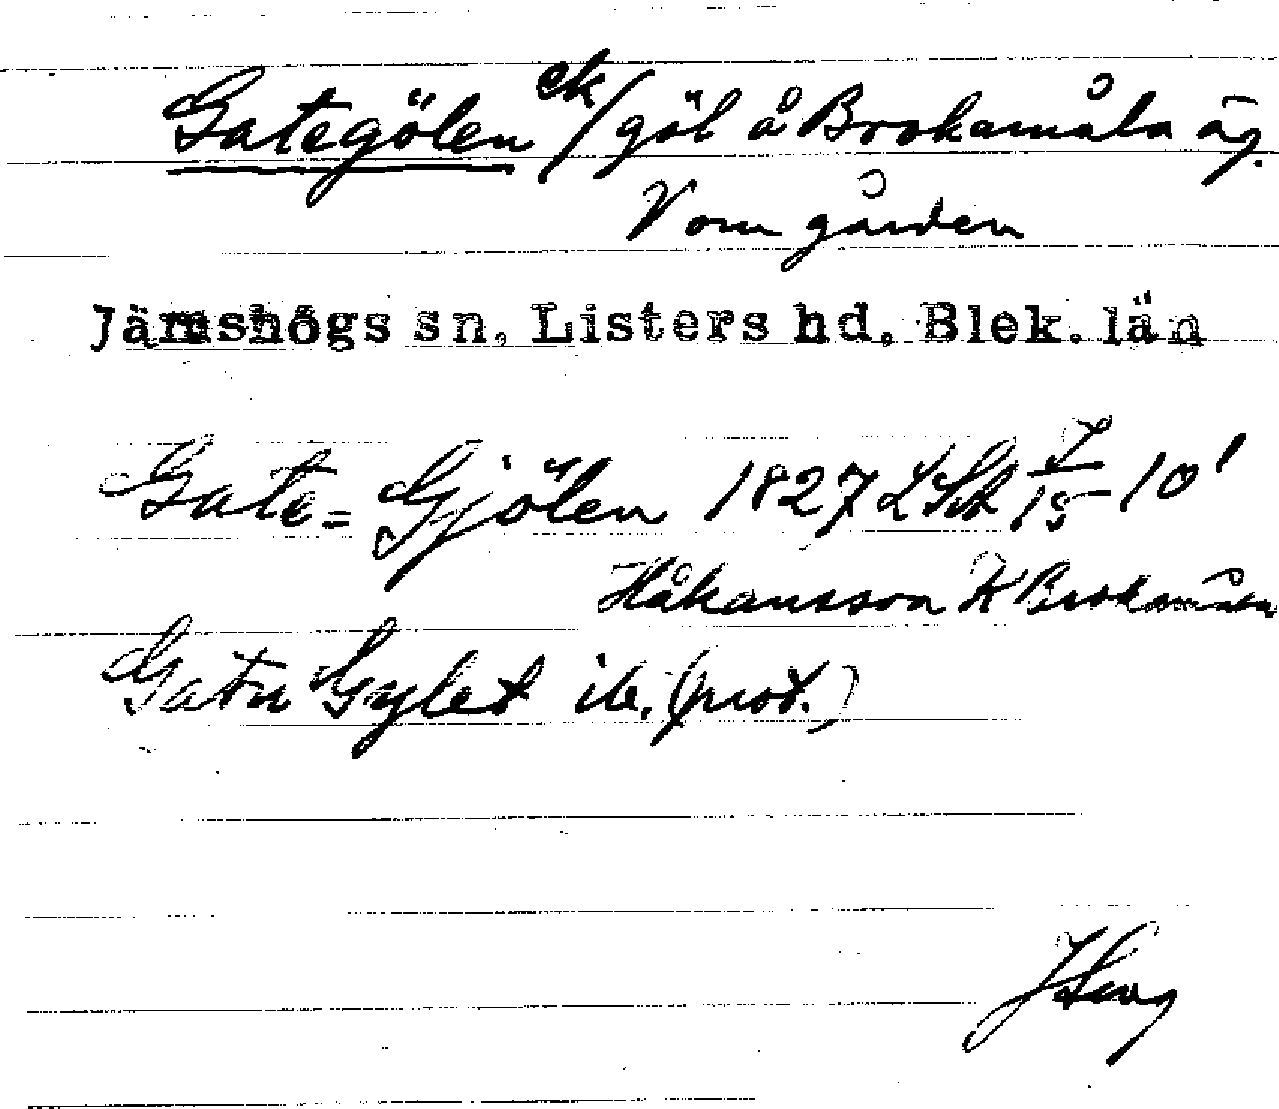 Gategölen ek/göl å Brokamåla äg.
V om gården
Jämshögs sn, Listers hd. Blek. län
Gate=Gjölen 1827 LSA J/15-10'
Håkansson K Brokamåla
Gatu Gylet ib. (prot.)